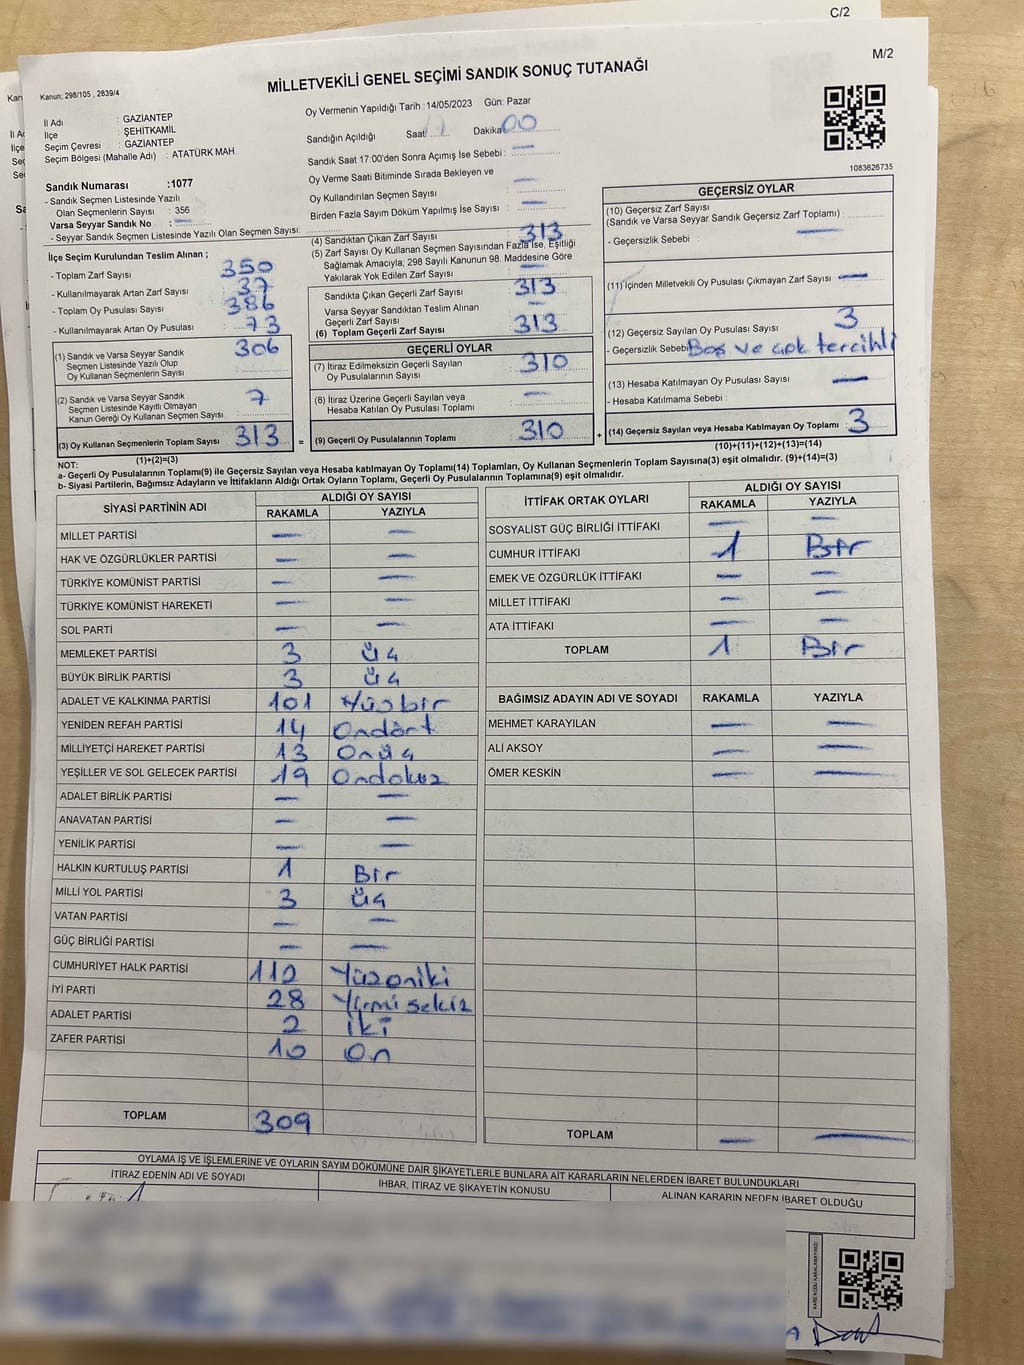 C/2
M/2
MİLLETVEKİLİ GENEL SEÇİMİ SANDIK SONUÇ TUTANAĞI
Kanun; 298/105 , 2839/4
İl Adı : GAZİANTEP
İlçe : ŞEHİTKAMİL
Seçim Çevresi : GAZİANTEP
Seçim Bölgesi (Mahalle Adı) : ATATÜRK MAH.
Oy Vermenin Yapıldığı Tarih : 14/05/2023 Gün: Pazar
Sandığın Açıldığı Saat Dakika 00
Sandık Saat 17:00'den Sonra Açımış İse Sebebi : —
Oy Verme Saati Bitiminde Sırada Bekleyen ve
Oy Kullandırılan Seçmen Sayısı : —
Birden Fazla Sayım Döküm Yapılmış İse Sayısı : —
1083626735
Sandık Numarası :1077
- Sandık Seçmen Listesinde Yazılı
Olan Seçmenlerin Sayısı : 356
Varsa Seyyar Sandık No : —
- Seyyar Sandık Seçmen Listesinde Yazılı Olan Seçmen Sayısı:
İlçe Seçim Kurulundan Teslim Alınan ;
- Toplam Zarf Sayısı : 350
- Kullanılmayarak Artan Zarf Sayısı : 37
- Toplam Oy Pusulası Sayısı : 386
- Kullanılmayarak Artan Oy Pusulası : 73
(1) Sandık ve Varsa Seyyar Sandık
Seçmen Listesinde Yazılı Olup
Oy Kullanan Seçmenlerin Sayısı : 306
(2) Sandık ve Varsa Seyyar Sandık
Seçmen Listesinde Kayıtlı Olmayan
Kanun Gereği Oy Kullanan Seçmen Sayısı : 7
(3) Oy Kullanan Seçmenlerin Toplam Sayısı : 313
(1)+(2)=(3)
(4) Sandıktan Çıkan Zarf Sayısı : 313
(5) Zarf Sayısı Oy Kullanan Seçmen Sayısından Fazla İse, Eşitliği
Sağlamak Amacıyla; 298 Sayılı Kanunun 98. Maddesine Göre
Yakılarak Yok Edilen Zarf Sayısı : —
Sandıkta Çıkan Geçerli Zarf Sayısı : 313
Varsa Seyyar Sandıktan Teslim Alınan
Geçerli Zarf Sayısı : —
(6) Toplam Geçerli Zarf Sayısı : 313
GEÇERLİ OYLAR
(7) İtiraz Edilmeksizin Geçerli Sayılan
Oy Pusulalarının Sayısı : 310
(8) İtiraz Üzerine Geçerli Sayılan veya
Hesaba Katılan Oy Pusulası Toplamı : —
= (9) Geçerli Oy Pusulalarının Toplamı : 310
GEÇERSİZ OYLAR
(10) Geçersiz Zarf Sayısı
(Sandık ve Varsa Seyyar Sandık Geçersiz Zarf Toplamı) :
- Geçersizlik Sebebi : —
(11) İçinden Milletvekili Oy Pusulası Çıkmayan Zarf Sayısı : —
(12) Geçersiz Sayılan Oy Pusulası Sayısı : 3
- Geçersizlik Sebebi : Boş ve çok tercihli
(13) Hesaba Katılmayan Oy Pusulası Sayısı : —
- Hesaba Katılmama Sebebi :
+ (14) Geçersiz Sayılan veya Hesaba Katılmayan Oy Toplamı : 3
(10)+(11)+(12)+(13)=(14)
NOT:
a- Geçerli Oy Pusulalarının Toplamı(9) ile Geçersiz Sayılan veya Hesaba katılmayan Oy Toplamı(14) Toplamları, Oy Kullanan Seçmenlerin Toplam Sayısına(3) eşit olmalıdır. (9)+(14)=(3)
b- Siyasi Partilerin, Bağımsız Adayların ve İttifakların Aldığı Ortak Oyların Toplamı, Geçerli Oy Pusulalarının Toplamına(9) eşit olmalıdır.
SİYASİ PARTİNİN ADI ALDIĞI OY SAYISI
RAKAMLA YAZIYLA
MİLLET PARTİSİ — —
HAK VE ÖZGÜRLÜKLER PARTİSİ — —
TÜRKİYE KOMÜNİST PARTİSİ — —
TÜRKİYE KOMÜNİST HAREKETİ — —
SOL PARTİ — —
MEMLEKET PARTİSİ 3 Üç
BÜYÜK BİRLİK PARTİSİ 3 Üç
ADALET VE KALKINMA PARTİSİ 101 Yüzbir
YENİDEN REFAH PARTİSİ 14 Ondört
MİLLİYETÇİ HAREKET PARTİSİ 13 Onüç
YEŞİLLER VE SOL GELECEK PARTİSİ 19 Ondokuz
ADALET BİRLİK PARTİSİ — —
ANAVATAN PARTİSİ — —
YENİLİK PARTİSİ — —
HALKIN KURTULUŞ PARTİSİ 1 Bir
MİLLİ YOL PARTİSİ 3 Üç
VATAN PARTİSİ — —
GÜÇ BİRLİĞİ PARTİSİ — —
CUMHURİYET HALK PARTİSİ 112 Yüzoniki
İYİ PARTİ 28 Yirmi sekiz
ADALET PARTİSİ 2 iki
ZAFER PARTİSİ 10 On
TOPLAM 309
İTTİFAK ORTAK OYLARI ALDIĞI OY SAYISI
RAKAMLA YAZIYLA
SOSYALİST GÜÇ BİRLİĞİ İTTİFAKI — —
CUMHUR İTTİFAKI 1 Bir
EMEK VE ÖZGÜRLÜK İTTİFAKI — —
MİLLET İTTİFAKI — —
ATA İTTİFAKI — —
TOPLAM 1 Bir
BAĞIMSIZ ADAYIN ADI VE SOYADI RAKAMLA YAZIYLA
MEHMET KARAYILAN — —
ALİ AKSOY — —
ÖMER KESKİN — —
TOPLAM — —
OYLAMA İŞ VE İŞLEMLERİNE VE OYLARIN SAYIM DÖKÜMÜNE DAİR ŞİKAYETLERLE BUNLARA AİT KARARLARIN NELERDEN İBARET BULUNDUKLARI
İTİRAZ EDENİN ADI VE SOYADI
İHBAR, İTİRAZ VE ŞİKAYETİN KONUSU
ALINAN KARARIN NEDEN İBARET OLDUĞU